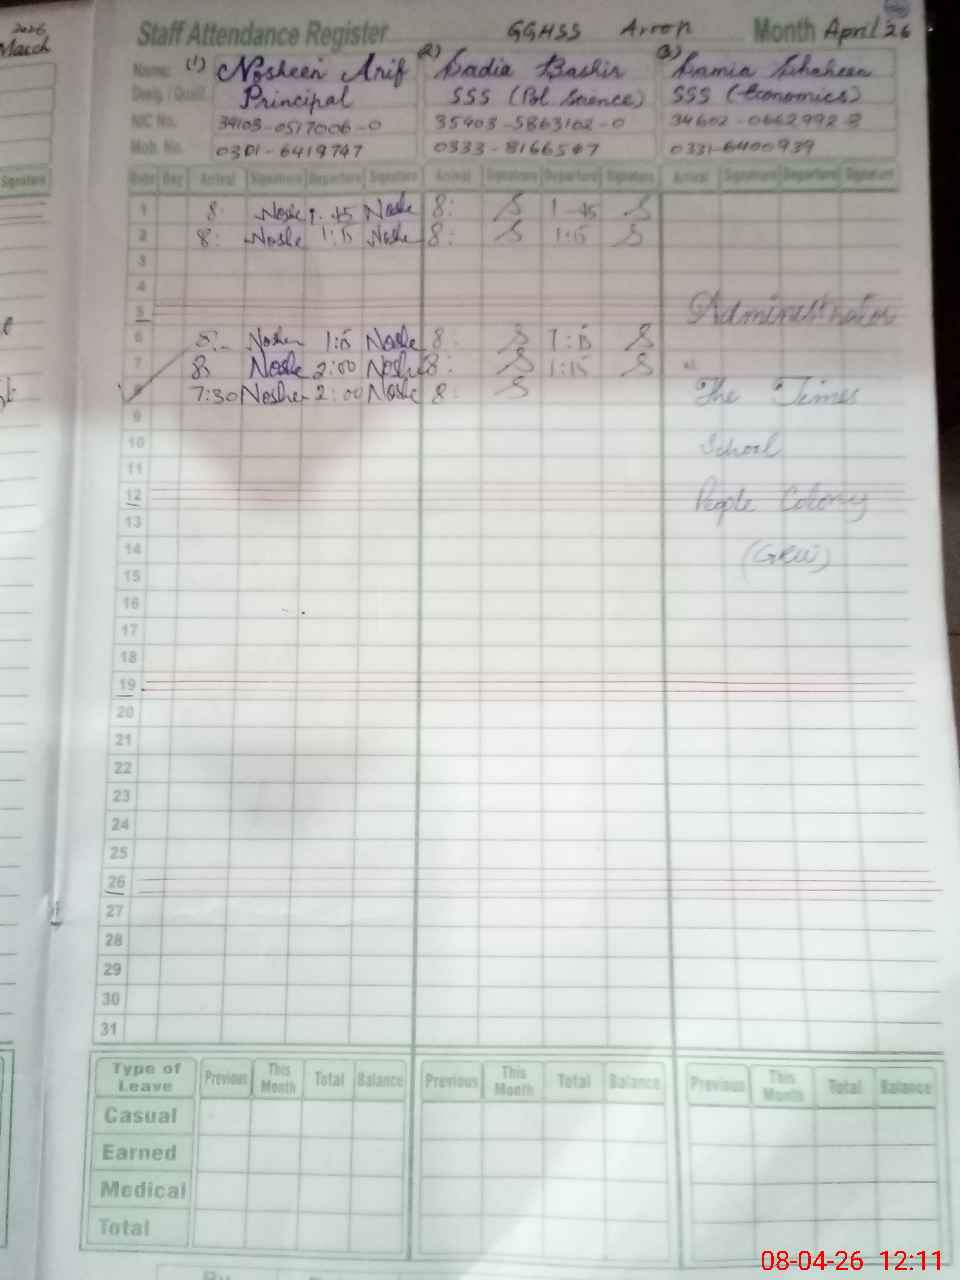 2026
March
Signature
Staff Attendance Register GGHSS Arrop Month April 26
Name: (1) Nosheen Arif (2) Sadia Bashir (3) Samia Shaheen
Desig / Qualif. Principal SSS (Pol. Science) SSS (Economics)
NIC No. 34103-0517006-0 35403-5863102-0 34602-0662992-8
Mob. No. 0301-6419747 0333-8166547 0331-6400939
Date Day Arrival Signature Departure Signature Arrival Signature Departure Signature Arrival Signature Departure Signature
1 8: Noshe 1:45 Noshe 8: S 1:45 S
2 8: Noshe 1:15 Noshe 8: S 1:15 S
3
4
5 Administrator
6 8:- Noshe 1:15 Noshe 8: S 1:15 S
7 8: Noshe 2:00 Noshe 8: S 1:15 S
8 7:30 Noshe 2:00 Noshe 8: S The Times
9
10 School
11
12 People Colony
13
14 (GRW)
15
16
17
18
19
20
21
22
23
24
25
26
27
28
29
30
31
Type of Leave Previous This Month Total Balance Previous This Month Total Balance Previous This Month Total Balance
Casual
Earned
Medical
Total
08-04-26 12:11